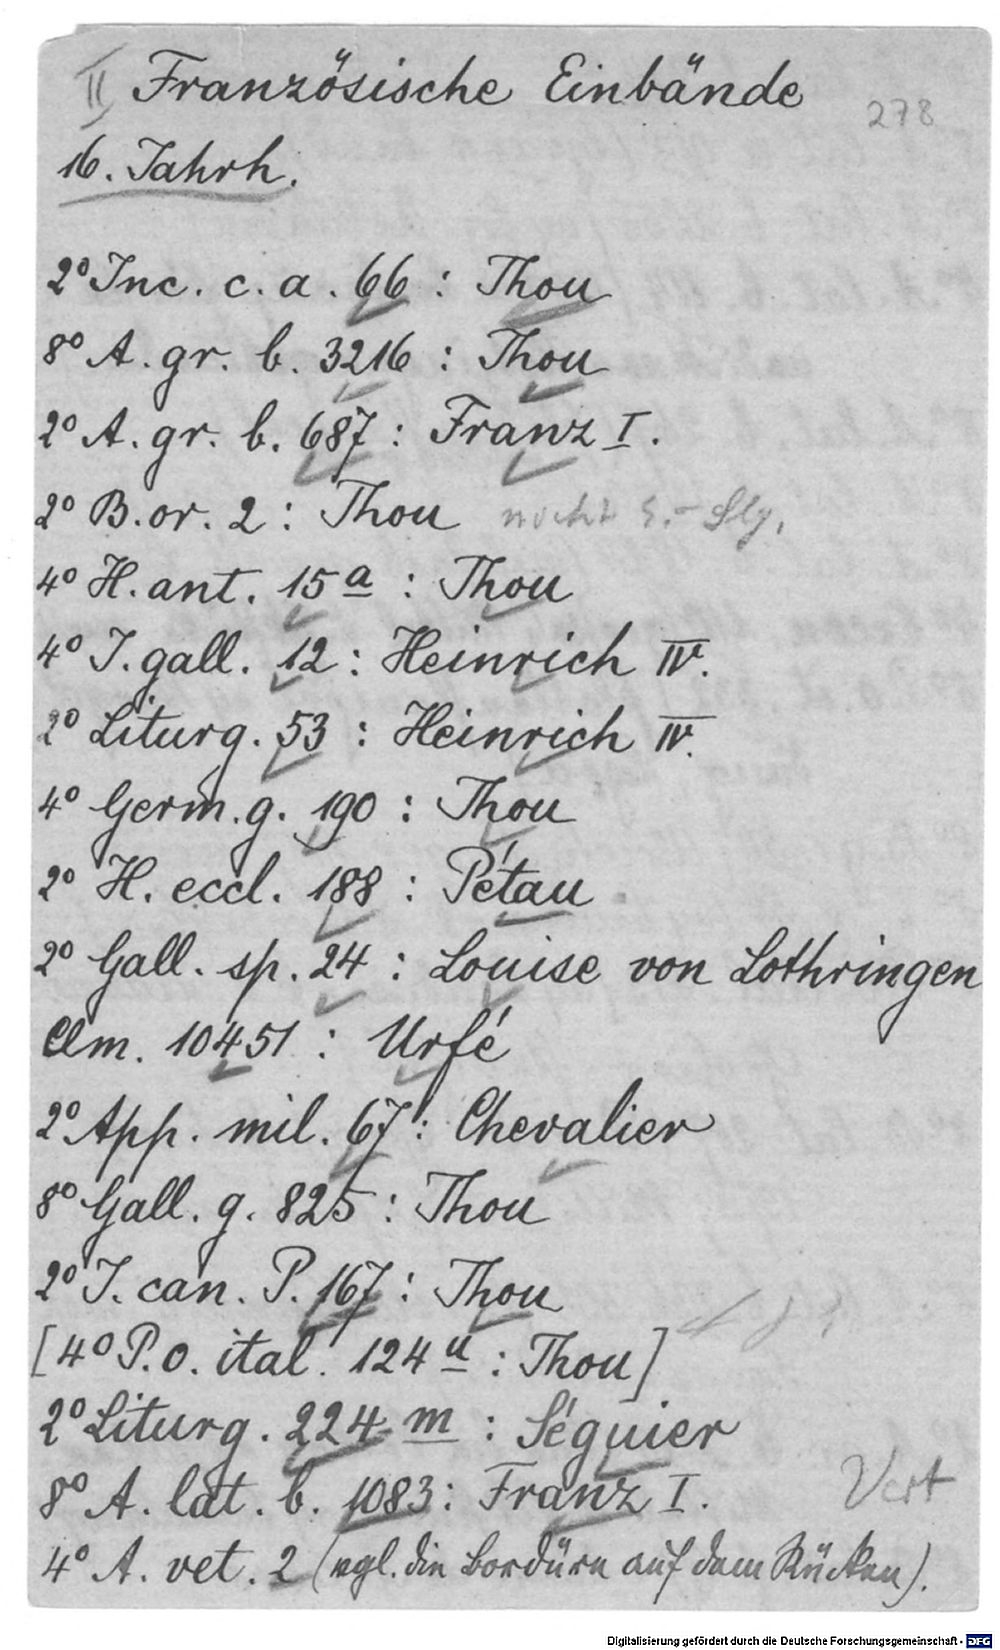 II Französische Einbände
278
16. Jahrh.
2° Inc. c. a. 66 : Thou
8° A. gr. b. 3216 : Thou
2° A. gr. b. 687 : Franz I.
2° B. or. 2 : Thou nicht E.-Slg.
4° H. ant. 15 a : Thou
4° J. gall. 12 : Heinrich IV.
2° Liturg. 53 : Heinrich IV.
4° Germ. g. 190 : Thou
2° H. eccl. 188 : Pétau
2° Gall. sp. 24 : Louise von Lothringen
Clm. 10451 : Urfé
2° App. mil. 67 : Chevalier
8° Gall. g. 825 : Thou
2° J. can. P. 167 : Thou
[4° P. o. ital. 124 u : Thou]
2° Liturg. 224 m : Séguier
8° A. lat. b. 1083 : Franz I.
4° A. vet. 2 (vgl. die Bordüre auf dem Rücken).
Digitalisierung gefördert durch die Deutsche Forschungsgemeinschaft - DFG